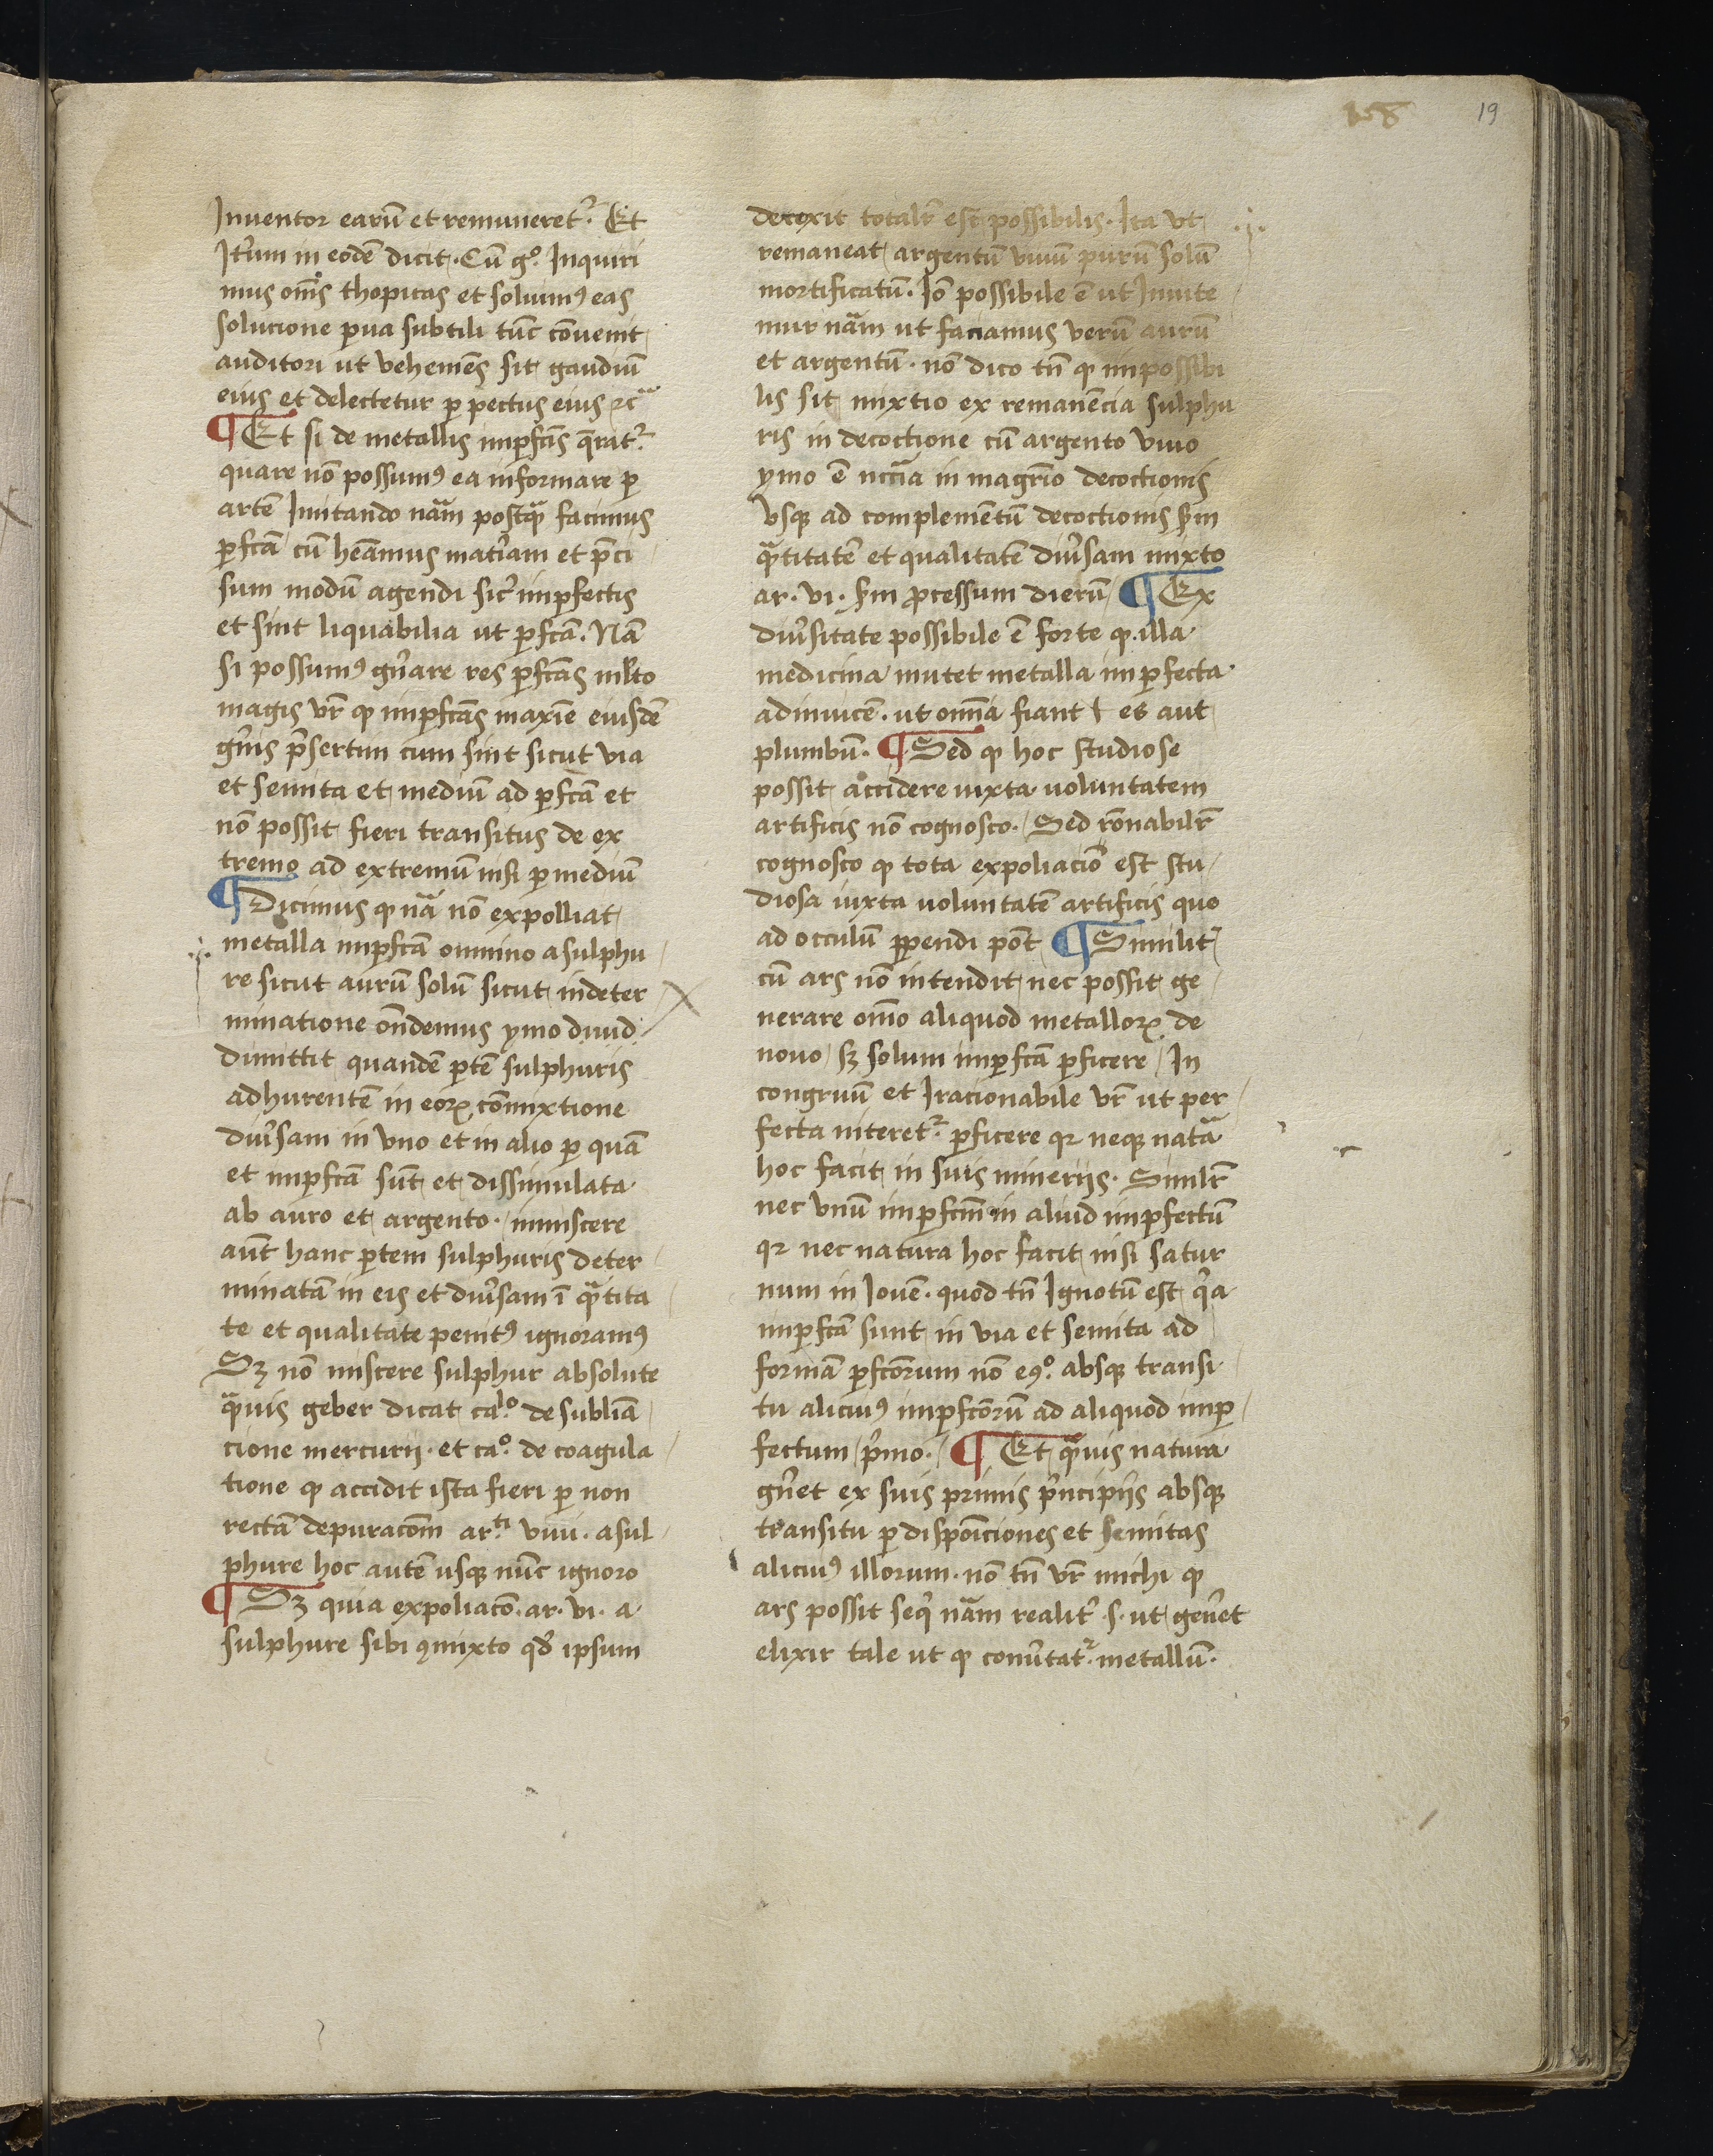 158 19
Inuentor earū et remuneret᷑. Et
It̄um in eodē dicit. Cū g°. Inquiri
mus om̄s thopicas et soluimꝰ eas
solucione p̄ua subtili tūc cōuenit
auditori ut vehemēs sit gaudiū
eius et delectetur ꝑ pectus eius ⁊cᵃ
¶ Et si de metallis imꝑfcīs q̄rat᷑
quare nō possumꝰ ea informare ꝑ
artē Imitando nām postqᵃ facimus
ꝑfcā cū hēamus mat̄iam et p̄ci
sum modū agendi sic̄ imꝑfectis
et sint liquabilia ut ꝑfcā. Nā
si possumꝰ gn̄are res ꝑfcās mlto
magis vr̄ ꝙ imꝑfcās maxīe eiusdē
gn̄is p̄sertim cum sint sicut via
et semita et mediū ad ꝑfcā et
nō possit fieri transitus de ex
tremo ad extremū nisi ꝑ mediū
¶ Dicimus ꝙ nā nō expolliat
metalla imꝑfcā omnino a sulphu
re sicut aurū solū sicut in deter
minatione on̄demus ymo
dimittit quandē ꝑtē sulphuris
adhurentē in eoꝝ cōmixtione
diūsam in vno et in alio ꝑ quā
et imꝑfcā sūt et dissimulata
ab auro et argento. immiscere
aūt hanc ꝑtem sulphuris deter
minatā in eis et diūsam ī qᵃtita
te et qualitate penitꝰ ignoramꝰ
Sꝫ nō miscere sulphur absolute
qᵃuis geber dicat caˡ°. de sublīa
cione mercurii. et ca°. de coagula
tione ꝙ accidit ista fieri ꝑ non
rectā depuracōm ar.ᵗⁱ viui. a sul
phure hoc autē usqꝫ nūc ignoro
¶ Sꝫ quia expoliacō. ar. vi. a
sulphure sibi ꝯmixto qd̄ ipsum
detexit totalr̄ est possibilis. Ita vt
remaneat argentū viuū purū solū
mortificatū. Iō possibile ē ut Imite
mur nām ut faciamus verū aurū
et argentū. nō dico tn̄ ꝙ impossibi
lis sit mixtio ex remanēcia sulphu
ris in decoctione cū argento viuo
ymo ē nccīa in magr̄io decoctionis
vsqꝫ ad complemētū decoctionis sm̄
qᵃtitatē et qualitatē diūsam mixto
ar. vi. sm̄ ꝓcessum dierū ¶ Ex
diūsitate possibile ē forte ꝙ. illa
medicina mutet metalla imꝑfecta
adinuicē. ut omīa fiant ł es aut
plumbū. ¶ Sed ꝙ hoc studiose
possit accidere iuxta uoluntatem
artificis nō cognosco. Sed rōnabilr̄
cognosco ꝙ tota expoliaciō est stu
diosa iuxta uoluntatē artificis quo
ad occulū ꝑpendi pōt ¶ Similit᷑
cū ars nō intendit nec possit ge
nerare om̄o aliquod metalloꝝ de
nouo sꝫ solum imꝑfcā ꝑficere In
congruū et Iracionabile vr̄ ut per
fecta niteret᷑ ꝑficere qꝛ neqꝫ natᵃ
hoc facit in suis mineriis. Similr̄
nec vnū imꝑfcm̄ in aliud imꝑfectū
qꝛ nec natura hoc facit nisi satur
num in Iouē. quod tn̄ Ignotū est qͥa
imꝑfcā sunt in via et semita ad
formā ꝑfcōrum nō eꝯ°. absqꝫ transi
tu aliciuꝰ imꝑfcōrū ad aliquod imꝑ
fectum pͥmo. ¶ Et qᵃuis natura
gn̄et ex suis primis pͥncipiis absqꝫ
transitu ꝑ dispoīciones et semitas
aliciuꝰ illorum. non tn̄ vr̄ michi ꝙ
ars possit seqͥ nām realit᷑ .s. ut gen̄et
elixir tale ut ꝙ conūtat᷑ metallū.